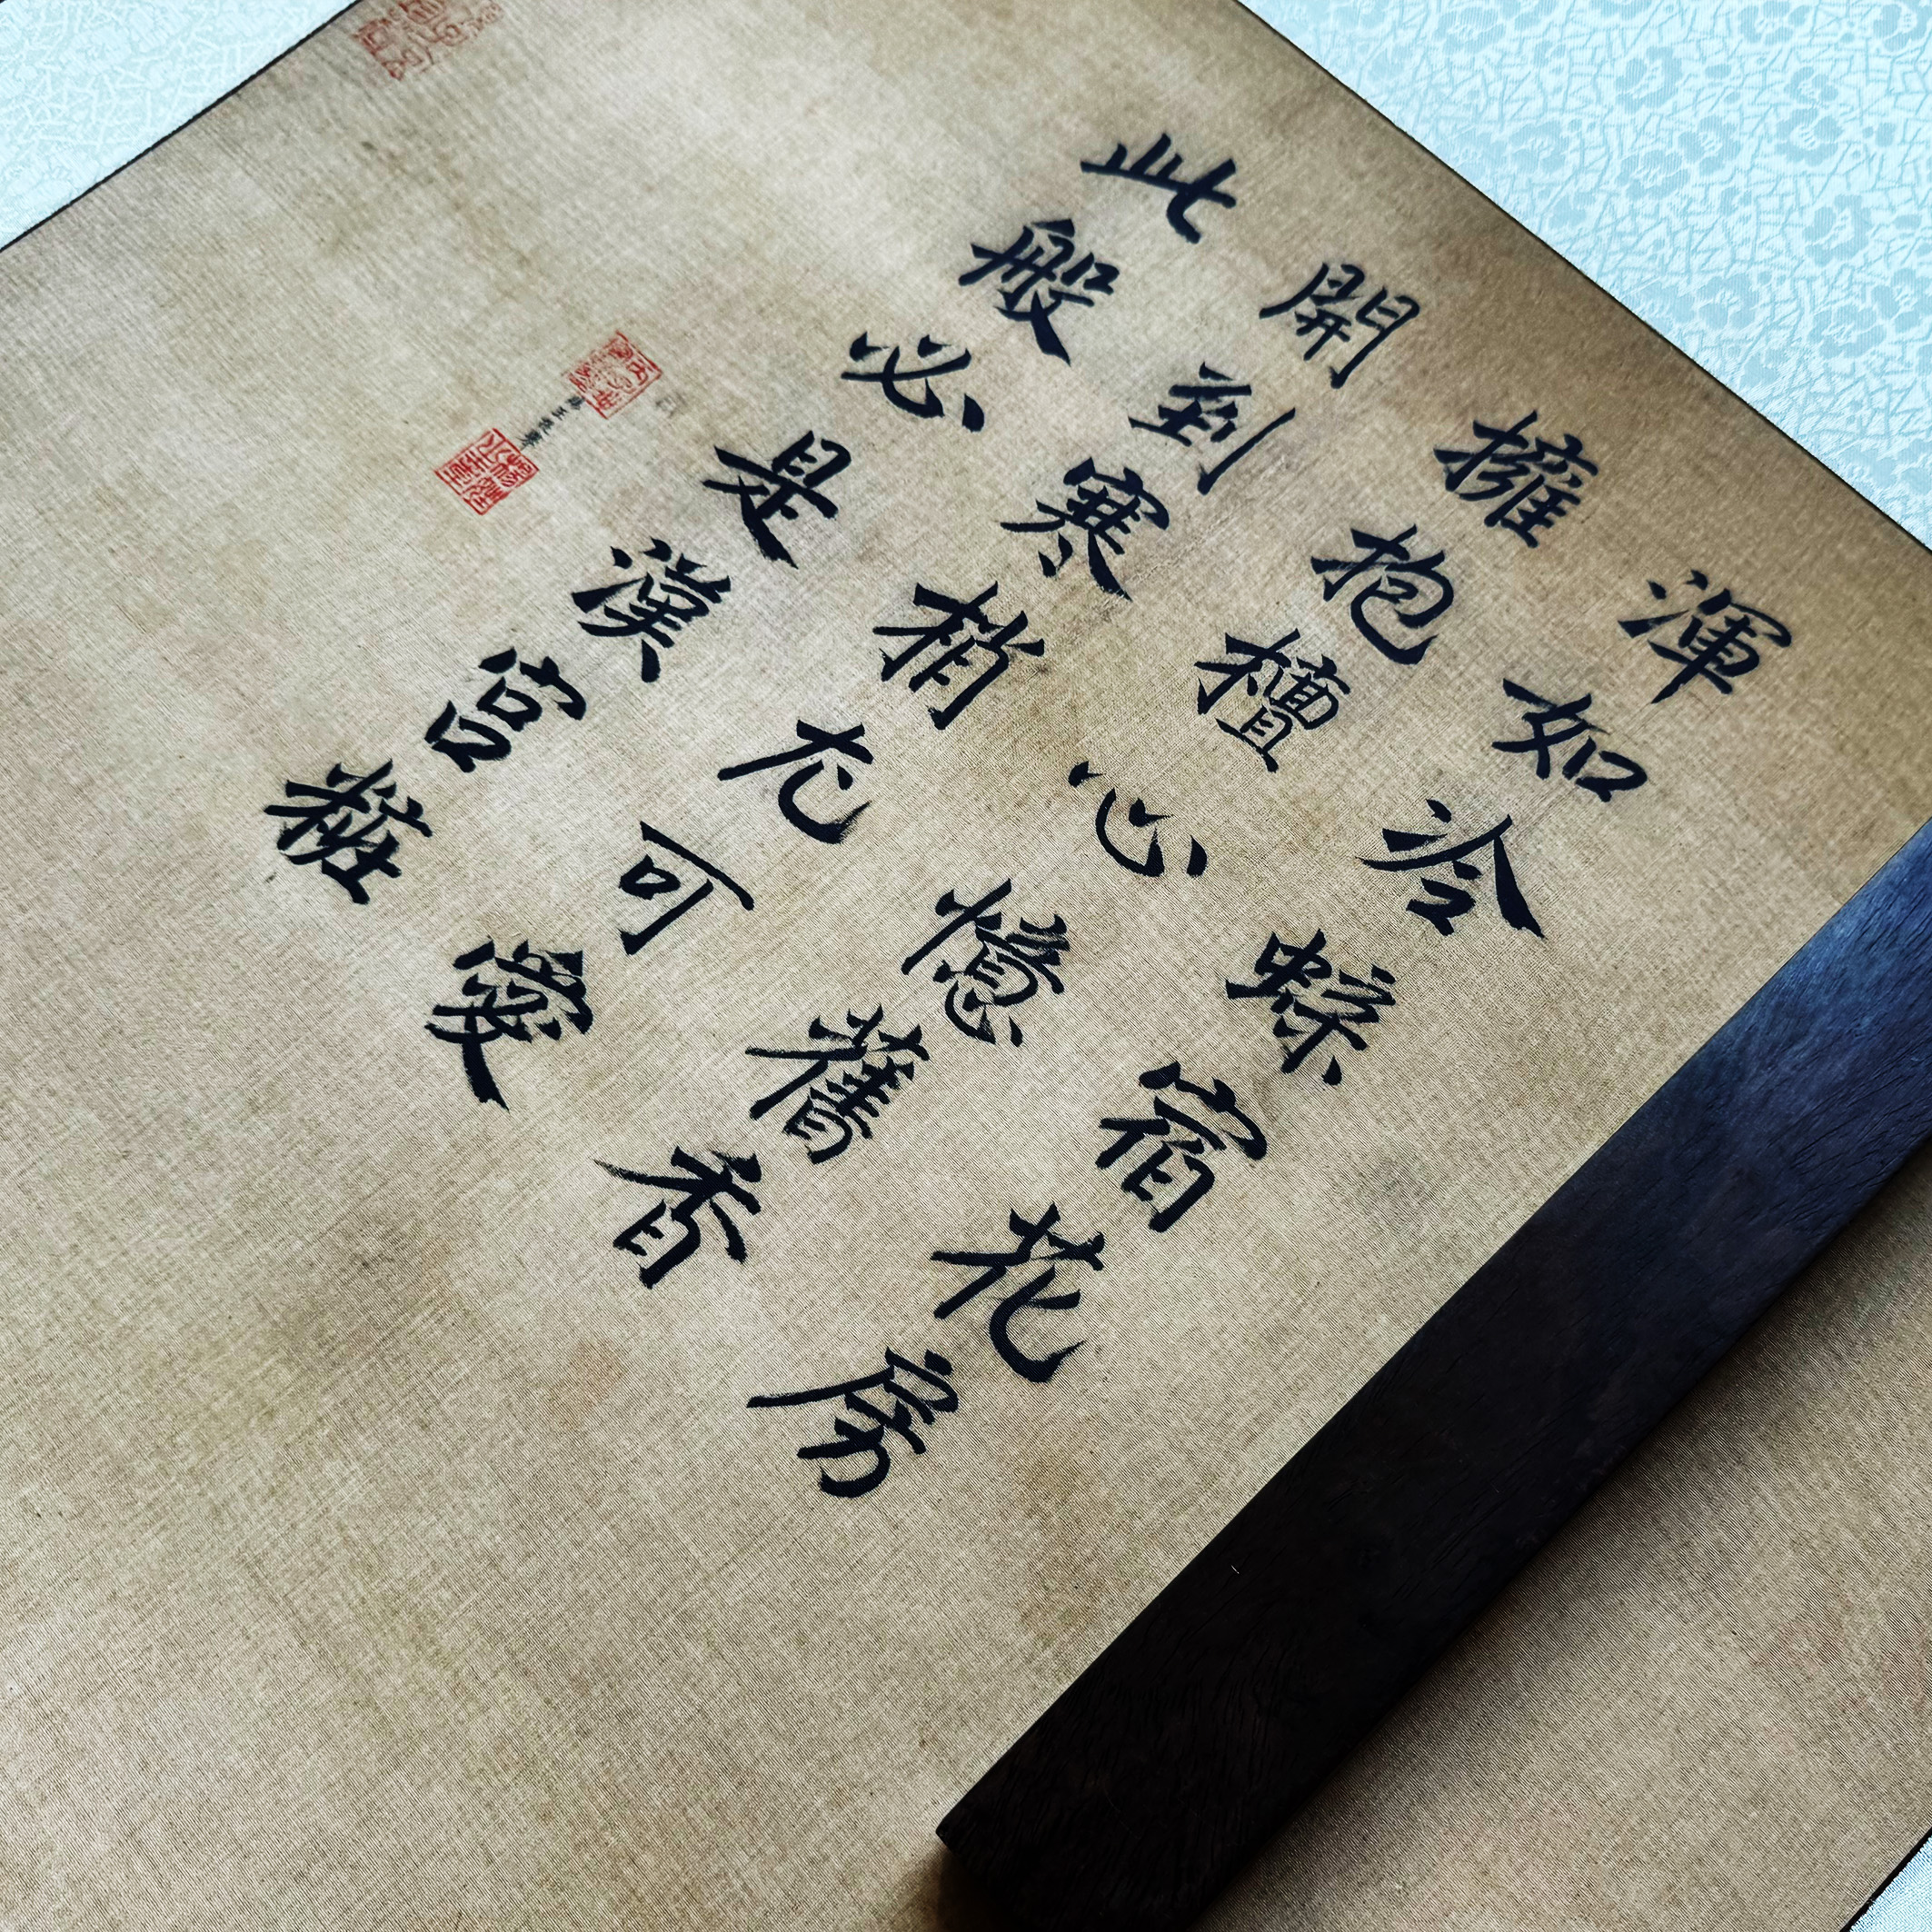 渾如冷蝶宿花房
擁抱檀心憶舊香
開到寒梢尤可愛
此般必是漢宮粧